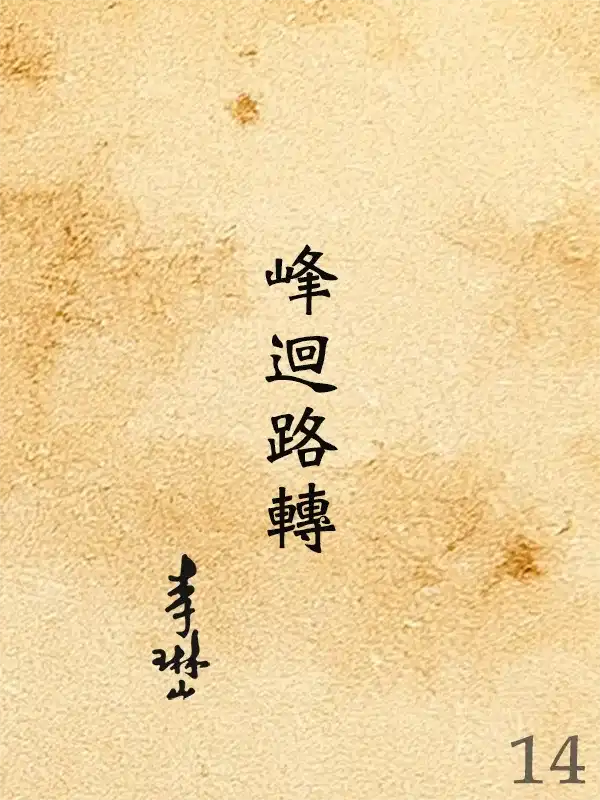 峰迴路轉
李琳山
14